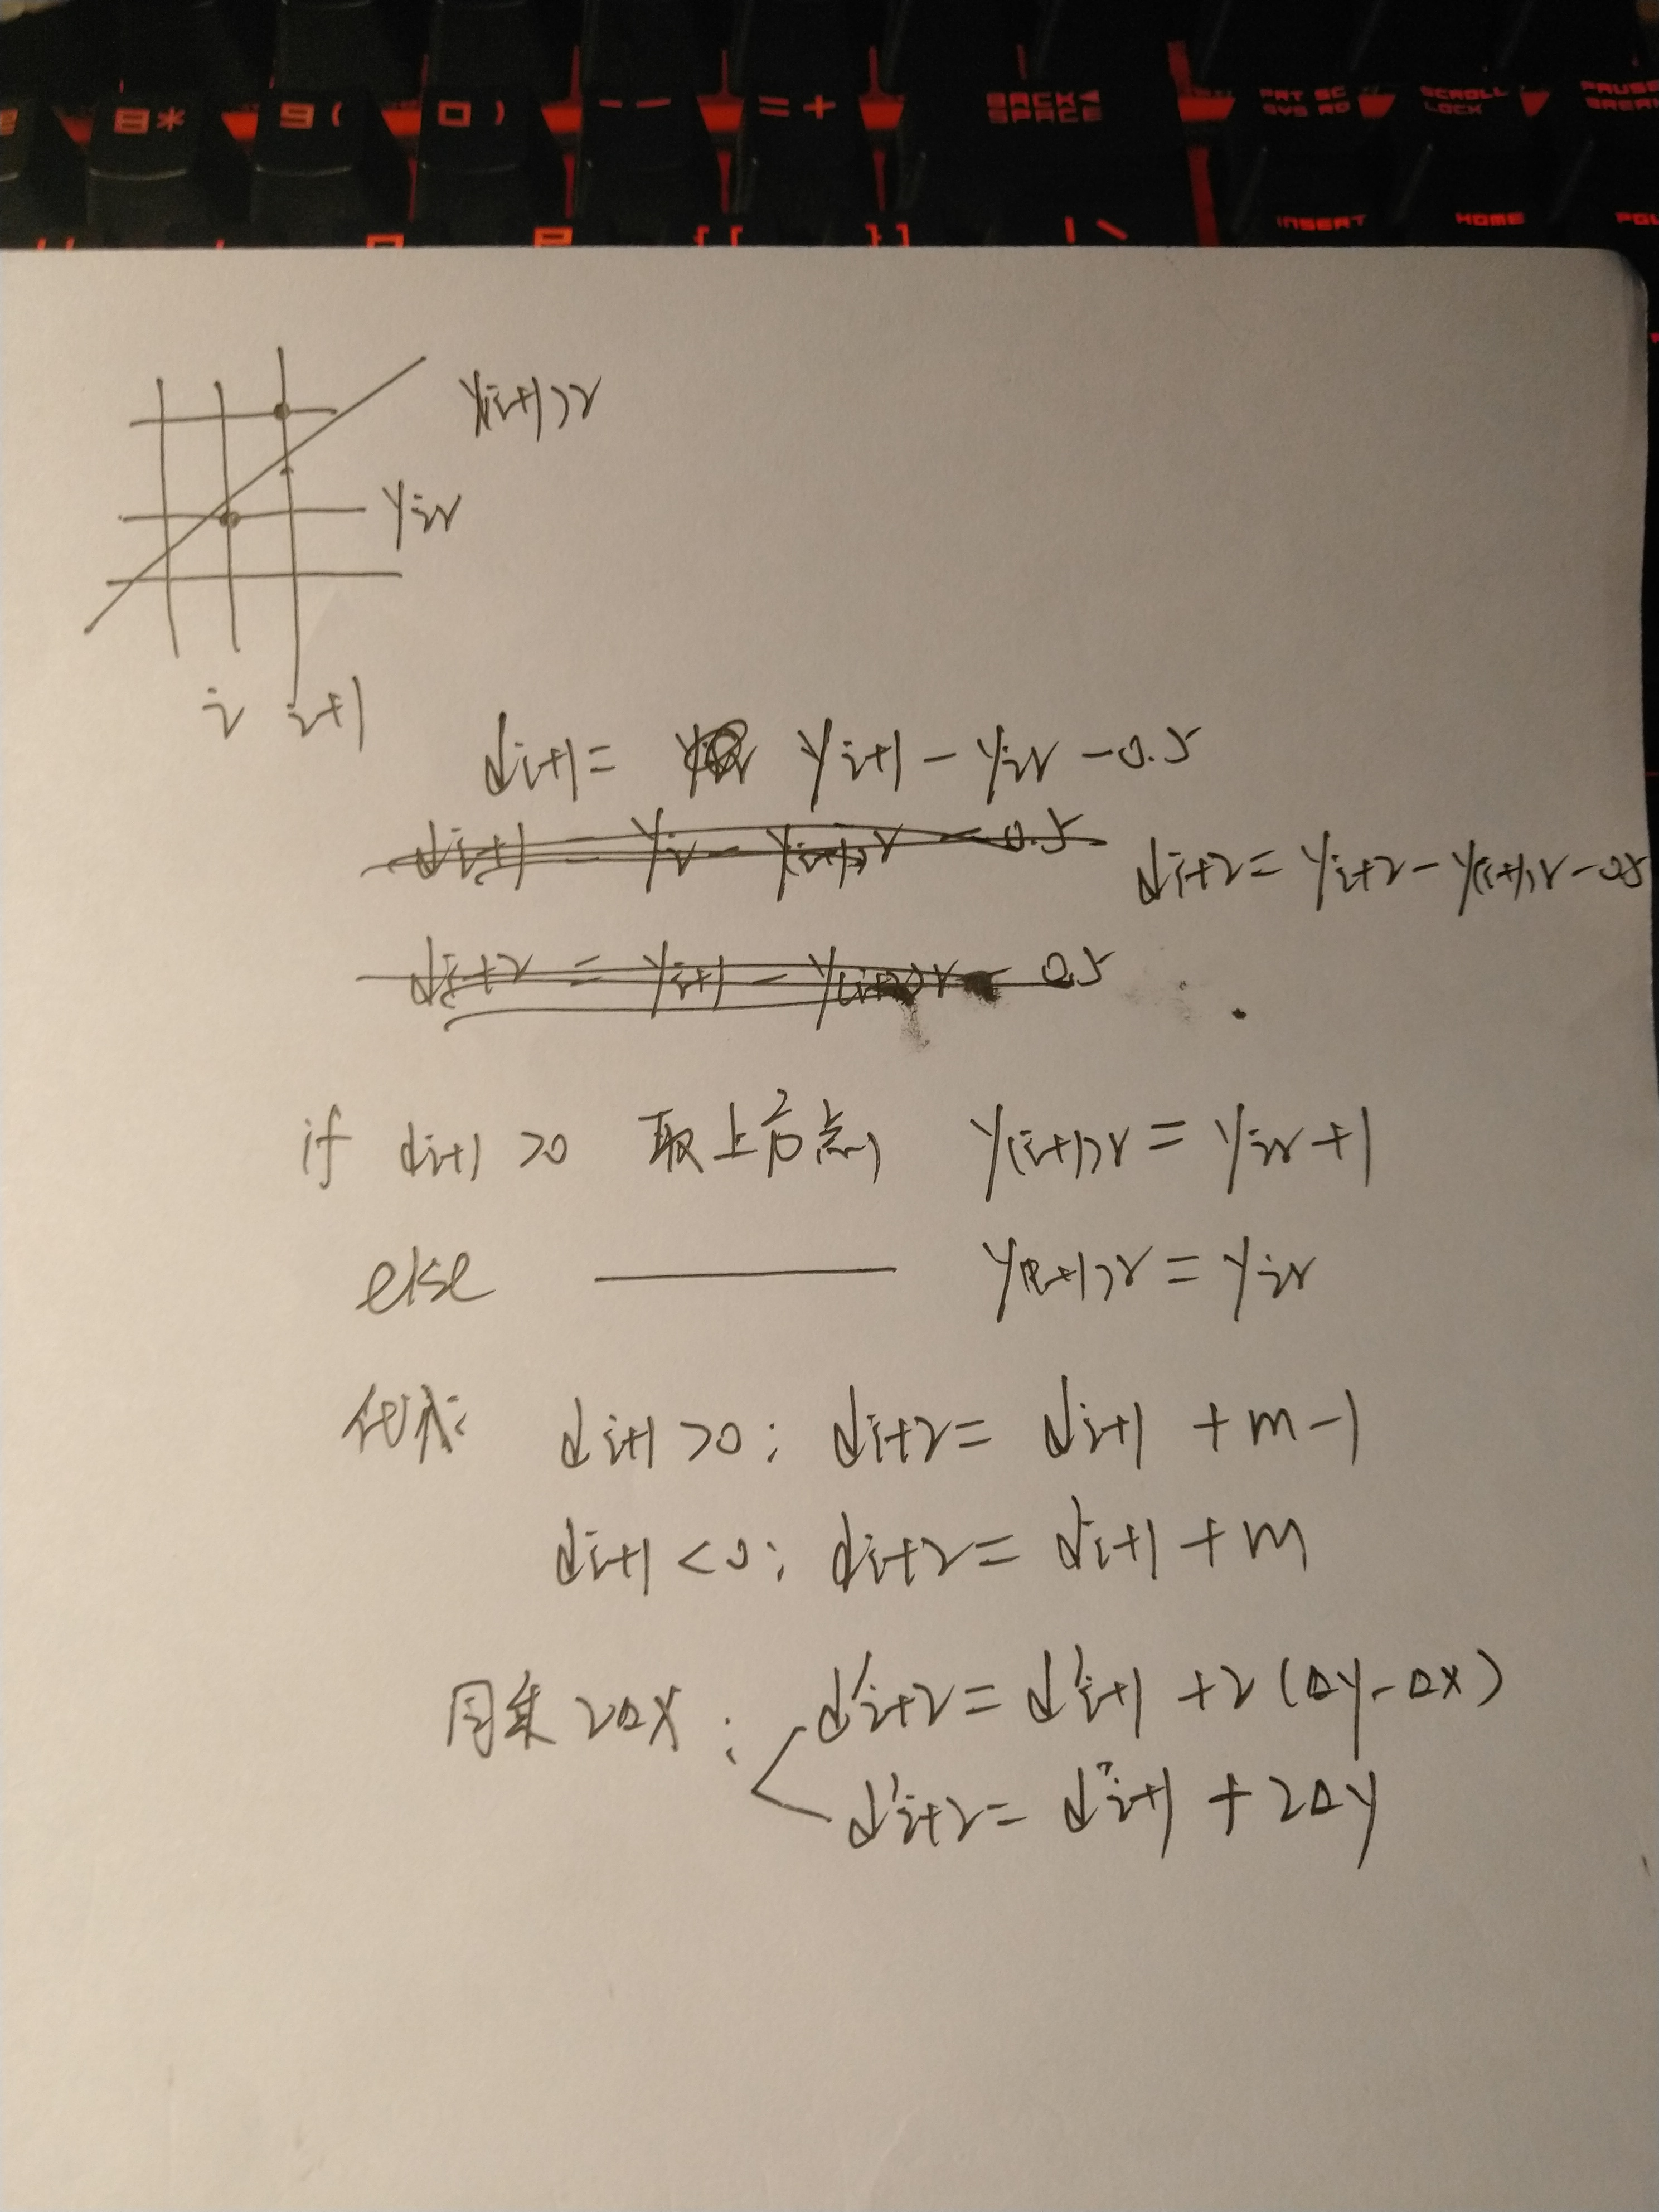 8* 9( 0) -- =+ BACK SPACE PRT SC SYS RQ SCROLL LOCK PAUSE BREAK
P {[ }] |\ INSERT HOME PGU
y(i+1)r
yir
i i+1
di+1 = yi+1 - yir - 0.5
di+1 = yi - y(i+1)r - 0.5
di+2 = yi+2 - y(i+1)r - 0.5
di+2 = yi+1 - y(i+2)r - 0.5
if di+1 >0 取上方点 y(i+1)r = yir +1
else —— y(i+1)r = yir
代入: di+1 >0: di+2 = di+1 + m - 1
di+1 <0: di+2 = di+1 + m
同乘 2△x : d'i+2 = d'i+1 + 2(△y - △x)
d'i+2 = d'i+1 + 2△y